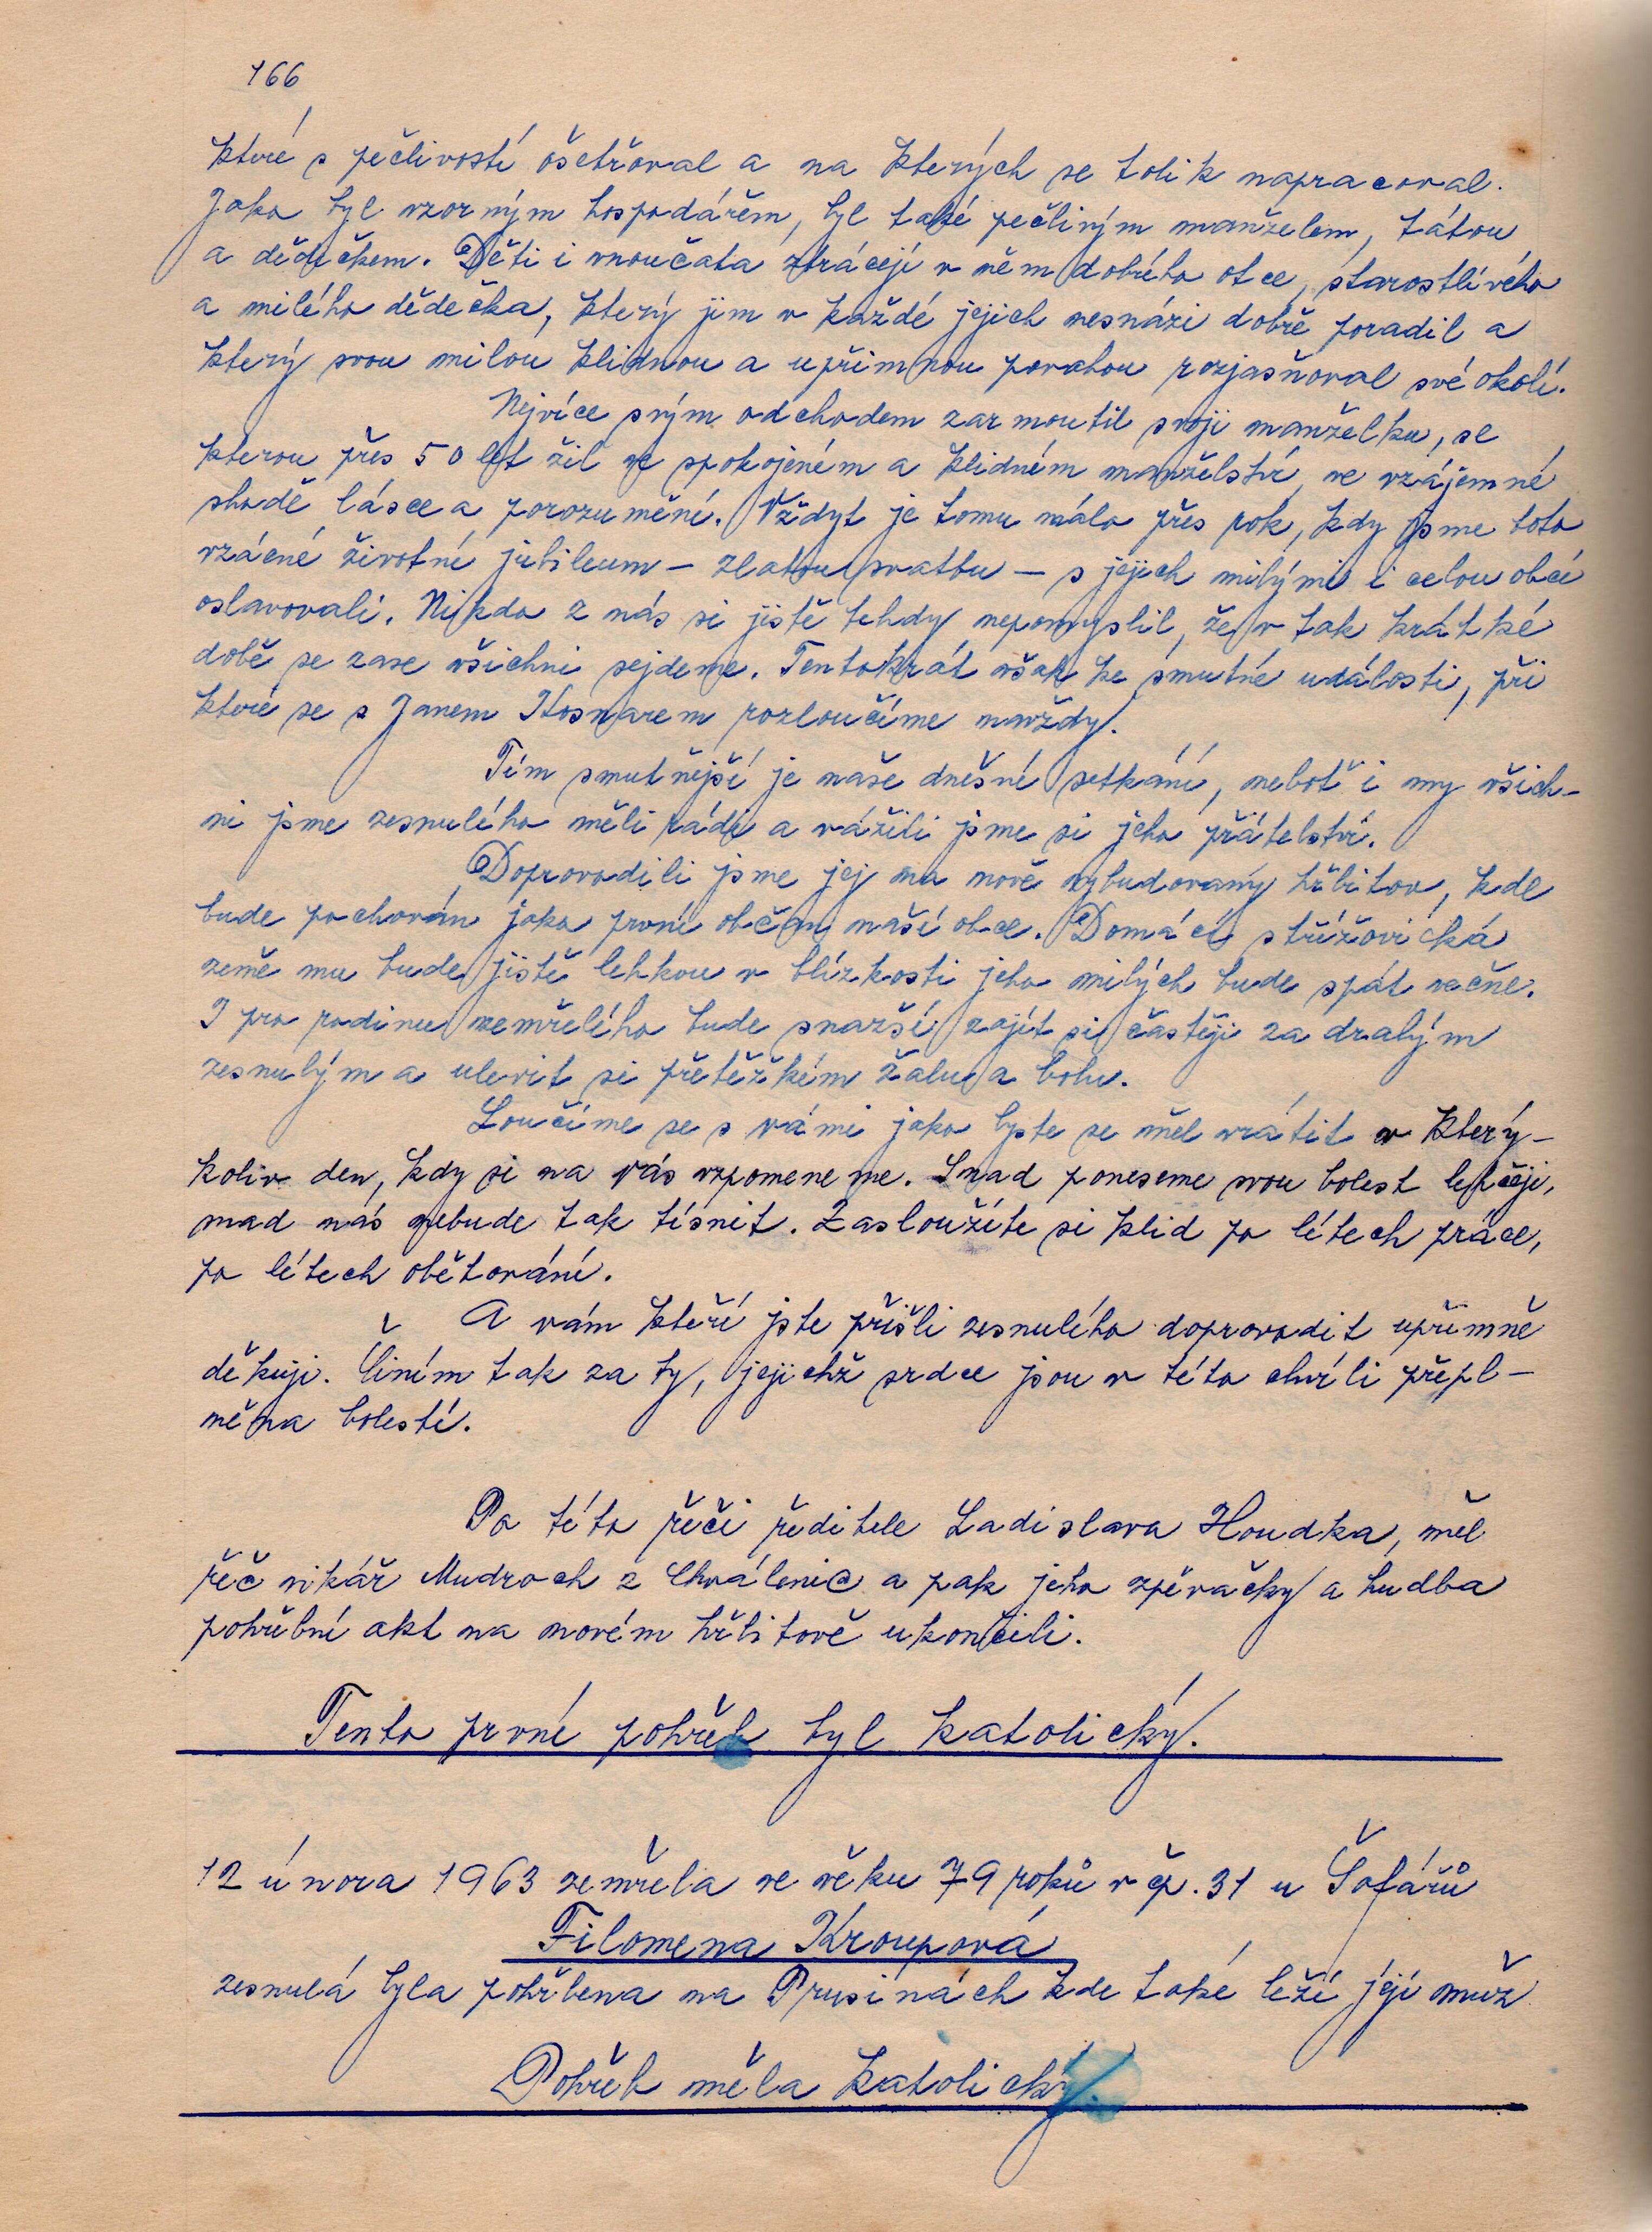 166
které s pečlivostí ošetřoval a na kterých se tolik napracoval.
Jako byl vzorným hospodářem, byl také pečlivým manželem, tátou
a dědečkem. Děti i vnoučata ztrácejí v něm dobrého otce, starostlivého
a milého dědečka, který jim v každé jejich nesnázi dobře poradil a
který svou milou klidnou a upřimnou povahou rozjasňoval své okolí.
Nejvíce svým odchodem zarmoutil svoji manželku, se
kterou přes 50 let žil ve spokojeném a klidném manželství, ve vzájemné
shodě lásce a porozumění. Vždyt je tomu málo přes rok, kdy jsme toto
vzácné životní jubileum - zlatou svatbu - s jejich milými i celou obcí
oslavovali. Nikdo z nás si jistě tehdy nepomyslil, že v tak krátké
době se zase všichni sejdeme. Tentokrát však ke smutné události, při
které se s Janem Hosnarem rozloučíme navždy.
Tím smutnější je naše dnešní setkání, neboť i my všich-
ni jsme zesnulého měli rádi a vážili jsme si jeho přátelství.
Doprovodili jsme jej na nově vybudovaný hřbitov, kde
bude pochován jako první občan naší obce. Domácí střížovická
země mu bude jistě lehkou v blízkosti jeho milých bude spát věčně.
I pro rodinu zemřelého bude snažší zajít si častěji za drahým
zesnulým a ulevit si přetěžkém žalu a bolu.
Loučíme se s vámi jako byste se měl vrátit v který-
koliv den, kdy si na vás vzpomeneme. Snad poneseme svou bolest lehčeji,
snad nás nebude tak tísnit. Zasloužíte si klid po létech práce,
po létech obětování.
A vám kteří jste přišli zesnulého doprovodit upřimně
děkuji. Činím tak za ty, jejichž srdce jsou v této chvíli přepl-
něna bolestí.
Po této řeči ředitele Ladislava Houdka, měl
řeč vikář Mudroch z Chválenic a pak jeho zpěvačky a hudba
pohřební akt na novém hřbitově ukončili.
Tento první pohřeb byl katolický.
12 února 1963 zemřela ve věku 79 roků v čp. 31 u Šafářů
Filomena Kroupová
zesnulá byla pohřbena na Prusinách kde také leží její muž
Pohřeb měla katolický.